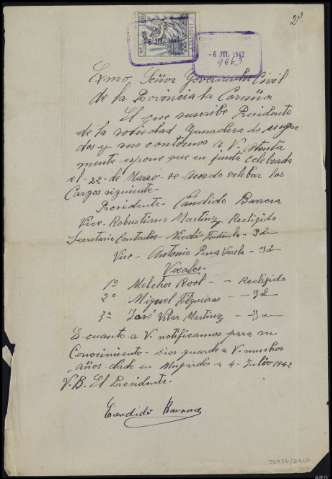 2º
-6 JUL 1942
9663
Exmo. Señor Governador Civil
de la Provincia la Coruña
El que suscribe Presidente
de la sociedad Ganadera de
y sus contornos a V. atenta
mente expone que en junta celebrada
el 22 de Marzo se acordo celebar los
Cargos siguiente.
Presidente - Candido Barrera
Vice. Robustiano Martinez Reeligido
Secretario Contador - - id
Vice - Antonio Varela - id
Vocales
1º Melchor Rool - - Reeligido
2º Miguel Filgueiras - id
3º José Vilar Martinez - id
E cuanto a V. notificamos para su
Conocimiento - Dios guarde a V. muchos
años dada en Mugardos a 4 Julio 1942
V.B. El Presidente.
Candido Barrera